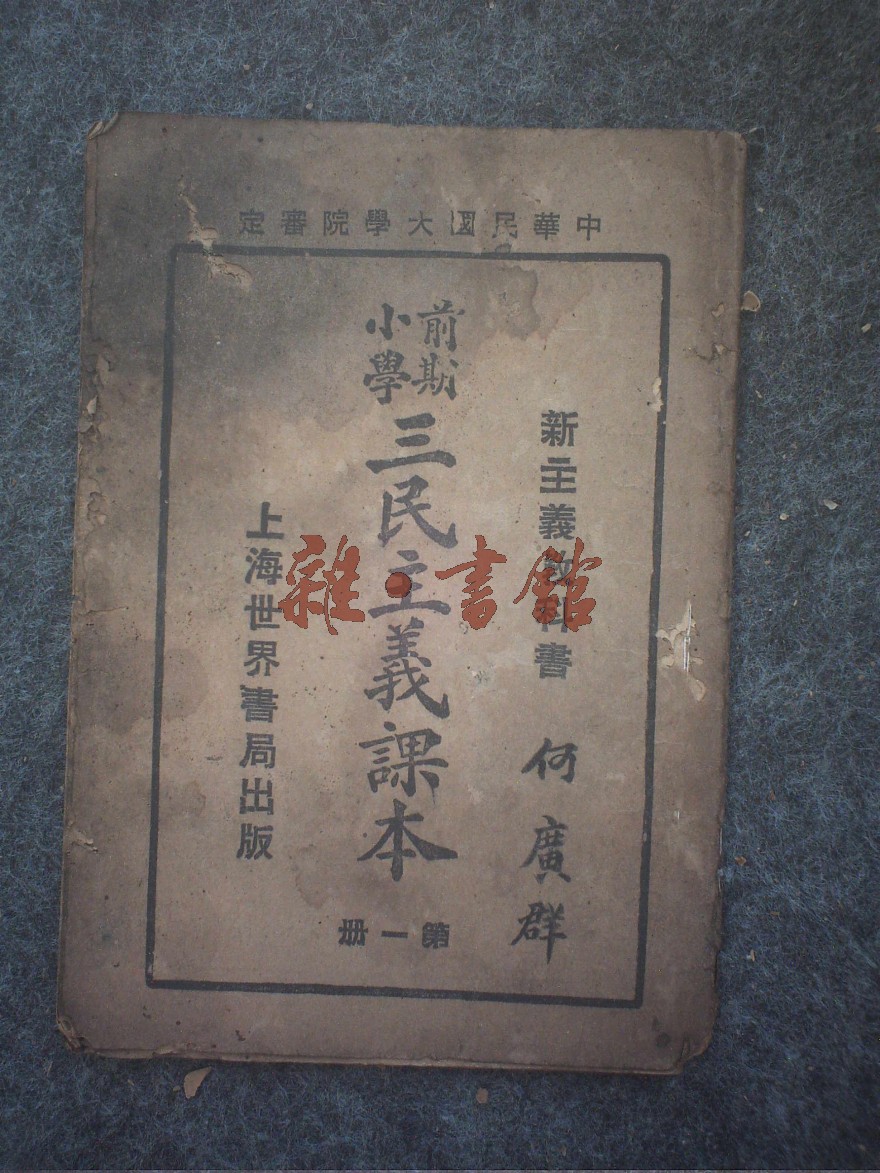 中華民國大學院審定
新主義教科書
何廣群
前期
小學
三民主義課本
第一册
上海世界書局出版
雜·書館